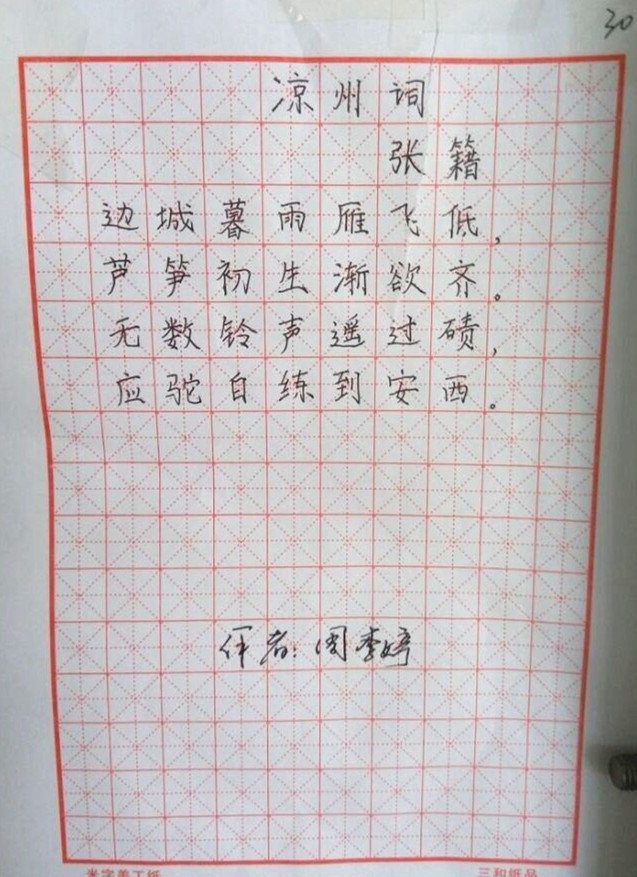 30
凉州词
张籍
边城暮雨雁飞低，
芦笋初生渐欲齐。
无数铃声遥过碛，
应驼自练到安西。
作者：周季婷
米字美工纸
三和纸品